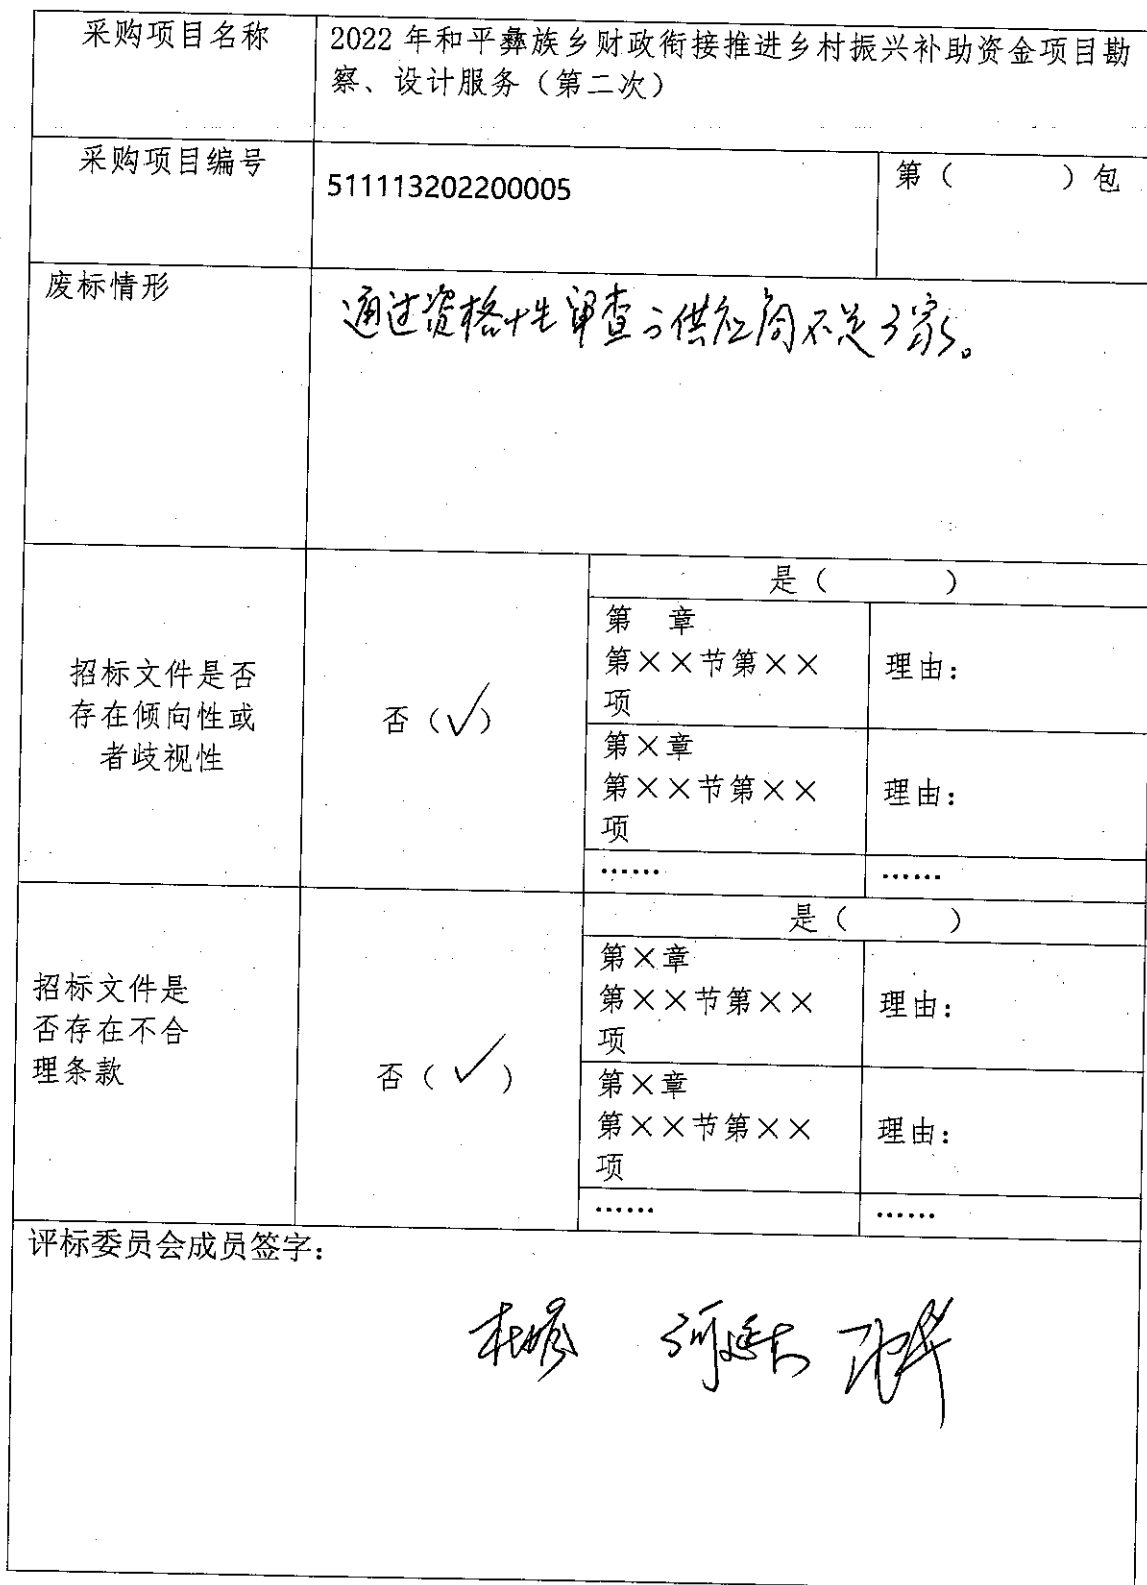 采购项目名称
2022 年和平彝族乡财政衔接推进乡村振兴补助资金项目勘
察、设计服务（第二次）
采购项目编号
511113202200005
第（ ）包
废标情形
通过资格性审查的供应商不足3家。
招标文件是否
存在倾向性或
者歧视性
否（√）
是（ ）
第 章
第××节第××
项
理由：
第×章
第××节第××
项
理由：
……
……
招标文件是
否存在不合
理条款
否（√）
是（ ）
第×章
第××节第××
项
理由：
第×章
第××节第××
项
理由：
……
……
评标委员会成员签字：